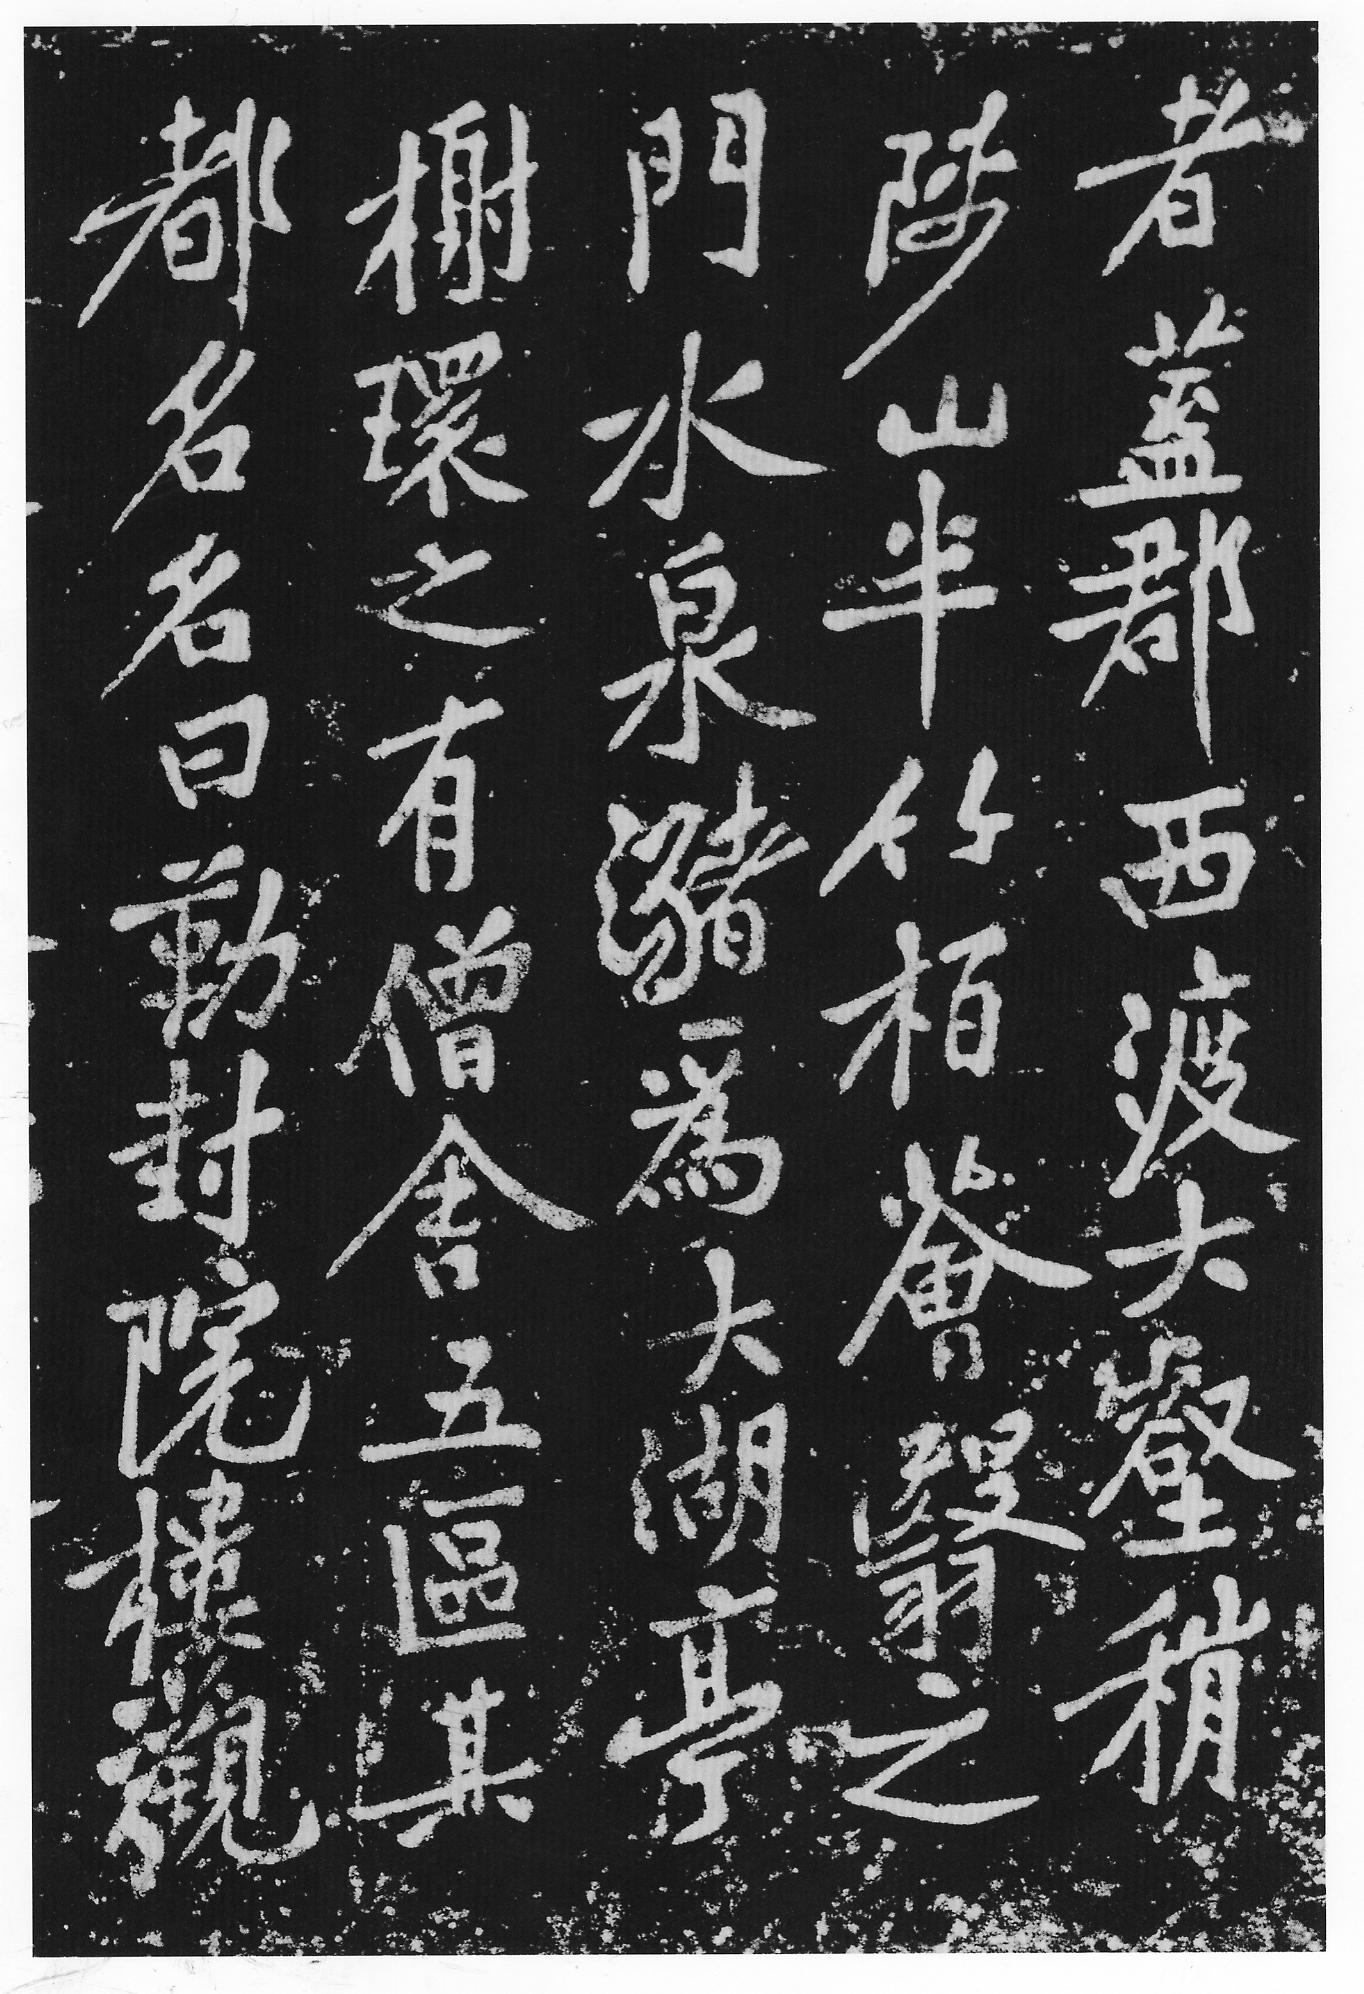 者蓋郡西渡大壑稍
陟山半竹栢薈翳之
門水泉瀦為大湖亭
榭環之有僧舍五區其
都名名曰勤封院樓觀